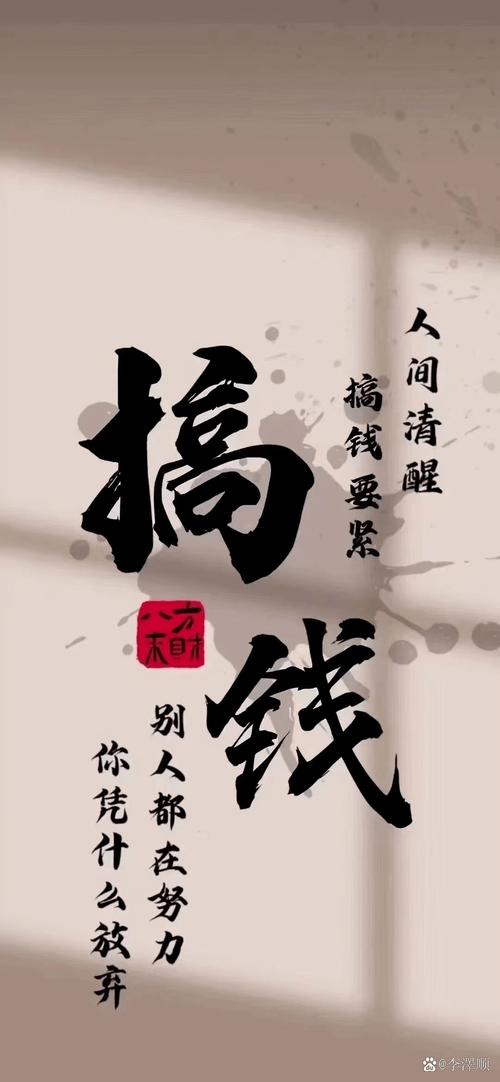 人间清醒
搞钱要紧
搞钱
八方来财
别人都在努力
你凭什么放弃
@李泽顺